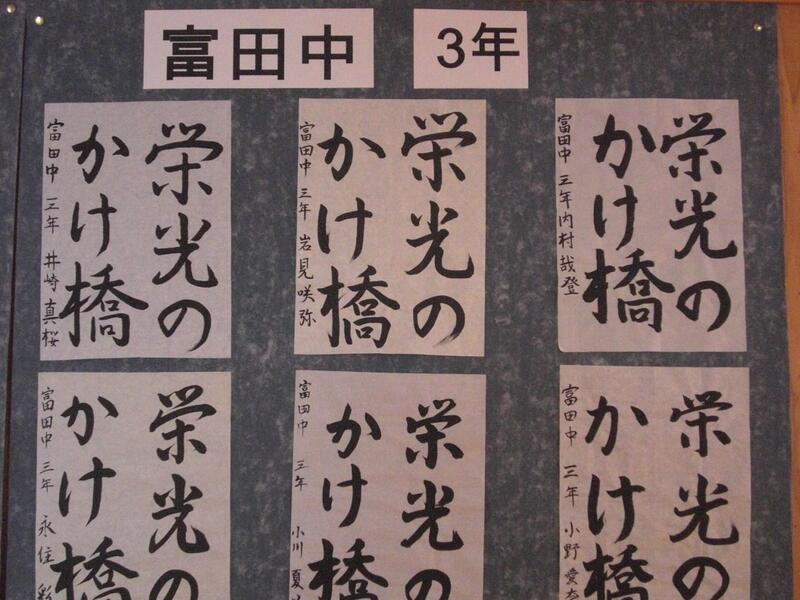 富田中
3年
栄光の
かけ橋
富田中 三年 井崎真桜
栄光の
かけ橋
富田中 三年 岩見咲弥
栄光の
かけ橋
富田中 三年 内村哉登
栄光の
かけ橋
富田中 三年 永住 彩
栄光の
かけ橋
富田中 三年 小川 夏
栄光の
かけ橋
富田中 三年 小野 愛